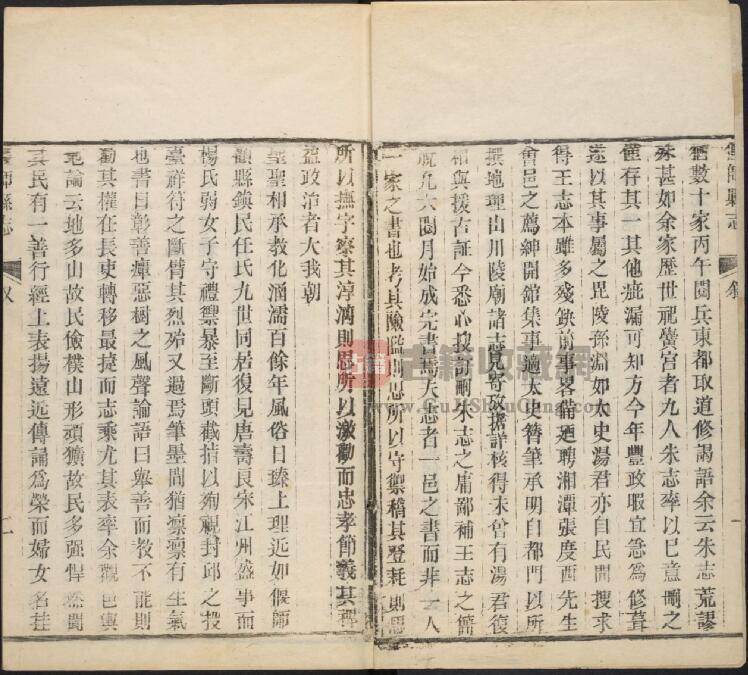 偃師縣志
舊數十家丙午閱兵東都取道修謁語余云朱志荒謬
殊甚如余家歷世祀黌宮者九人朱志率以已意刪之
僅存其一其他疵漏可知方今年豐政暇宜急為修葺
遂以其事屬之毘陵孫淵如太史湯君亦自民間搜求
得王志本雖多殘缺前事畧備廼聘湘潭張度西先生
會邑之薦紳開舘集事適太史簪筆承明自都門以所
撰地理山川陵廟諸志見寄攷據詳核得未曾有湯君復
相與援古証今悉心搜討刪朱志之庸鄙補王志之簡
脫凡六閱月始成完書焉夫志者一邑之書而非一人
一家之書也考其險隘則思所以守禦稽其登耗則思
所以撫字察其淳漓則思所以激勸而忠孝節義其裨
益政治者大我朝
聖聖相承教化涵濡百餘年風俗日臻上理近如偃師
顧縣鎮民任氏九世同居復見唐壽良宋江州盛事而
楊氏弱女子守禮禦暴至斷頭截指以殉視封邱之投
臺祥符之斷臂其烈殆又過焉筆墨間猶凜凜有生氣
也書曰彰善癉惡樹之風聲論語曰舉善而教不能則
勸其權在長吏轉移最捷而志乘尤其表率余觀邑輿
地論云地多山故民儉樸山形頑獷故民多强悍然聞
其民有一善行經上表揚遠近傳誦為榮而婦女名挂
師縣志
二
古籍收藏網
www.GuJiShuCang.com